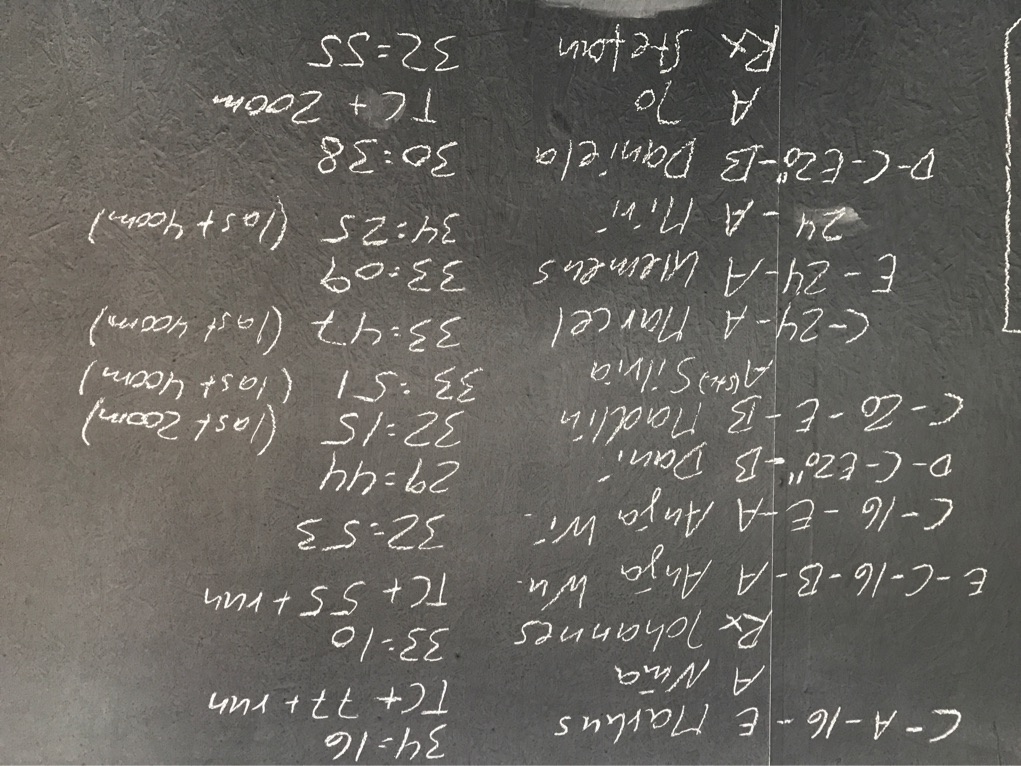 C-A-16-E Markus 34:16
A Nina TC+77+run
Rx Johannes 33:10
E-C-16-B-A Anja Wu. TC+55+run
C-16-E-A Anja Wi. 32:53
D-C-E20"-B Dani 29:44
C-20-E-B Madlin 32:15 (last 200m)
Silvia 33:51 (last 400m)
C-24-A Marcel 33:47 (last 400m)
E-24-A Klemens 33:09
24-A Miri 34:25 (last 400m)
D-C-E20"-B Daniela 30:38
A Jo TC+200m
Rx Stefan 32:55